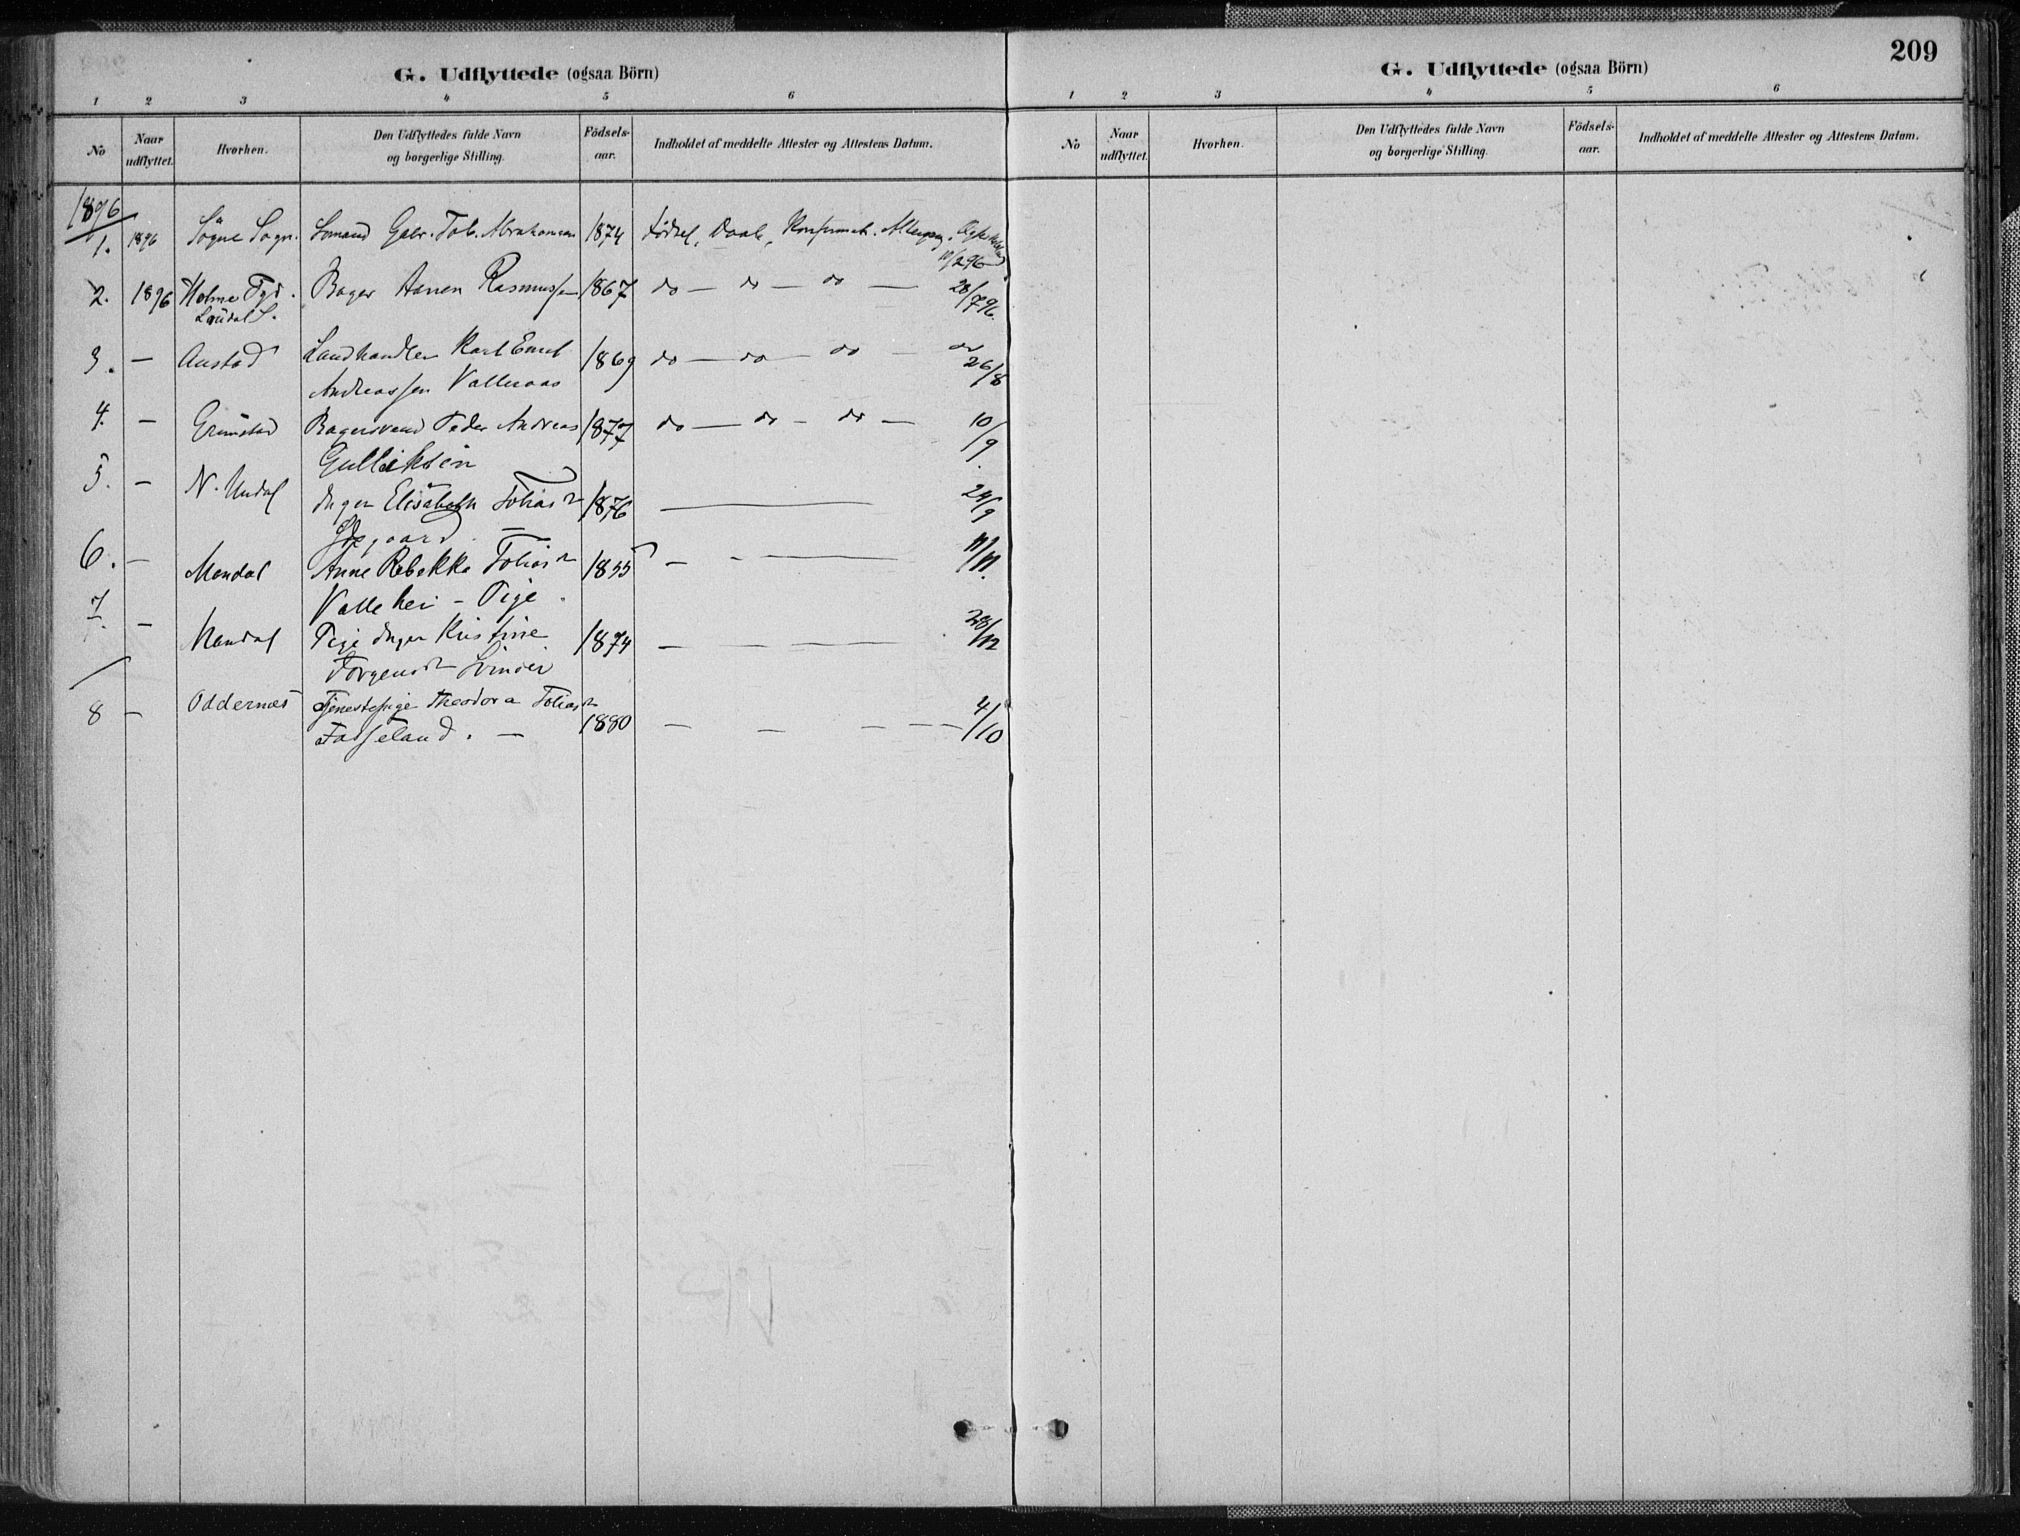 209
G. Udflyttede (ogsaa Börn)
1 2 3 4 5 6
No Naar udflyttet. Hvorhen. Den Udflyttedes fulde Navn og borgerlige Stilling. Födsels-aar. Indholdet af meddelte Attester og Attestens Datum.
1896
1. 1896 Sögne Sogn. Sömand Gabr. Tob. Abrahamsen 1874 Födsel, Daab, Konfirmat. Altergang,
11/2 96
2. 1896 Holme Pgd. Bager Hansen Rasmussen 1867 do — do — do — 28/7 96.
Laudal S.
3. — Austad Landhandler Karl Emil 1869 do — do — do — do 26/8
Andreassen Valleraas
4. — Grimstad Bagersvend Peder Andreas 1877 do — do — do — 10/9
Gulliksen
5. — N. Undal Inger Elisabeth Tobiasdr 1876 — 24/9
6. — Mandal Anne Rebekka Tobiasdr 1855 — - — 11/11.
Vallehei - Pige.
7. — Mandal Pige Inger Kristine 1874 — — — 28/12
Jörgensdr
8 — Oddernes Tjenestepige Theodora Tobiasdr 1880 — — — — — 4/10
Fasseland. —
G. Udflyttede (ogsaa Börn)
1 2 3 4 5 6
No Naar udflyttet. Hvorhen. Den Udflyttedes fulde Navn og borgerlige Stilling. Födsels-aar. Indholdet af meddelte Attester og Attestens Datum.